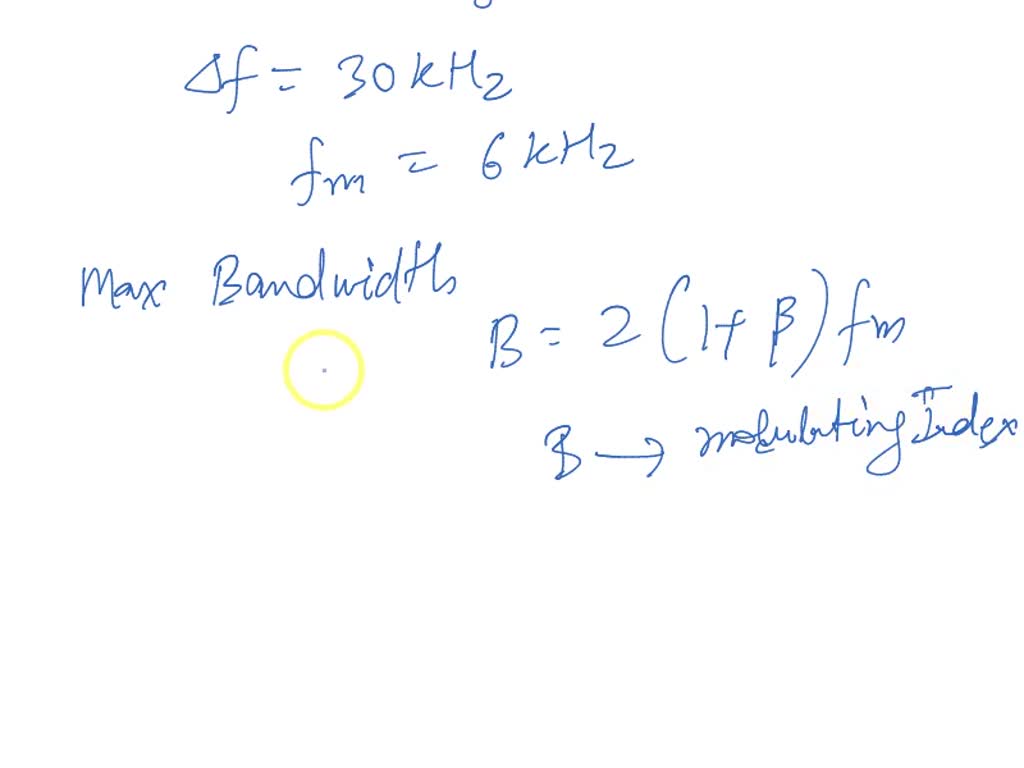 Δf = 30 kHz
fm = 6 kHz
Max Bandwidth
B = 2 (1+ β) fm
β → modulating Index